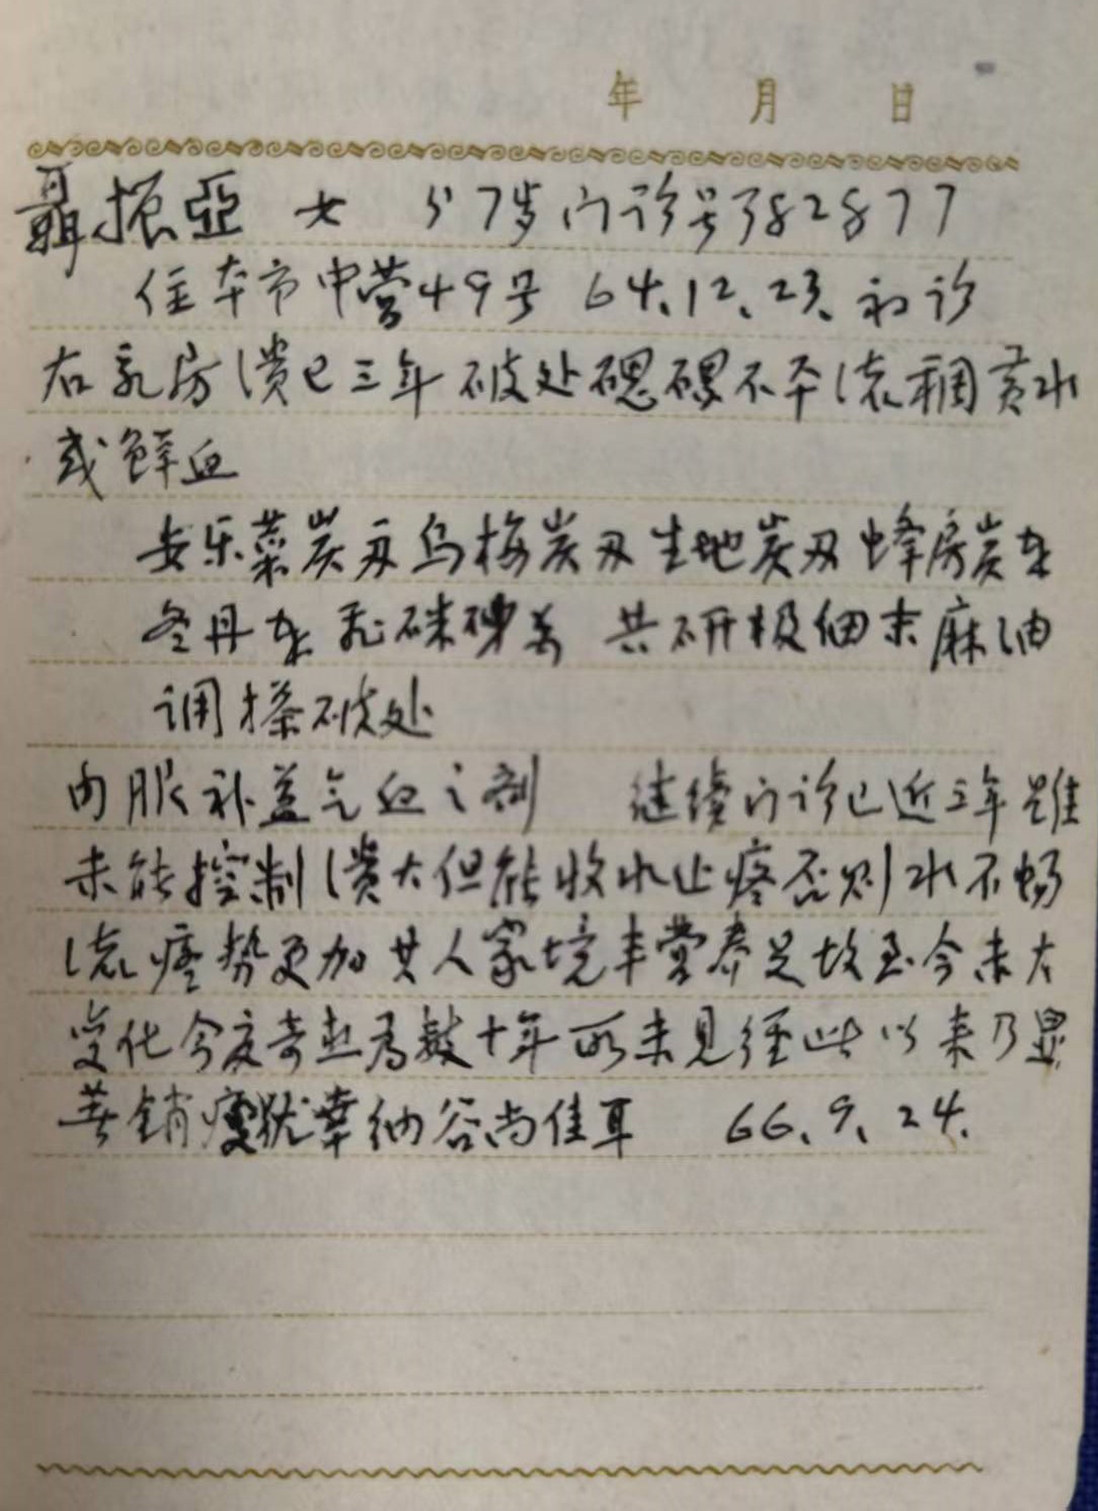 年 月 日
聶振亞 女 57岁 门诊号382877
住本市中营49号 64.12.23.初诊
右乳房溃已三年破处磥磥不平流稠黄水
或鲜血
安乐菜炭 乌梅炭 生地炭 蜂房炭
冬丹 共研极细末麻油
调搽破处
内服补益气血之剂 继续门诊已近三年虽
未能控制溃大但能收水止疼否则水不畅
流疼势更加其人家境丰营养足故至今未大
变化今度奇迹为数十年所未见经此以来乃显
著销瘦犹幸纳谷尚佳耳 66.9.24.